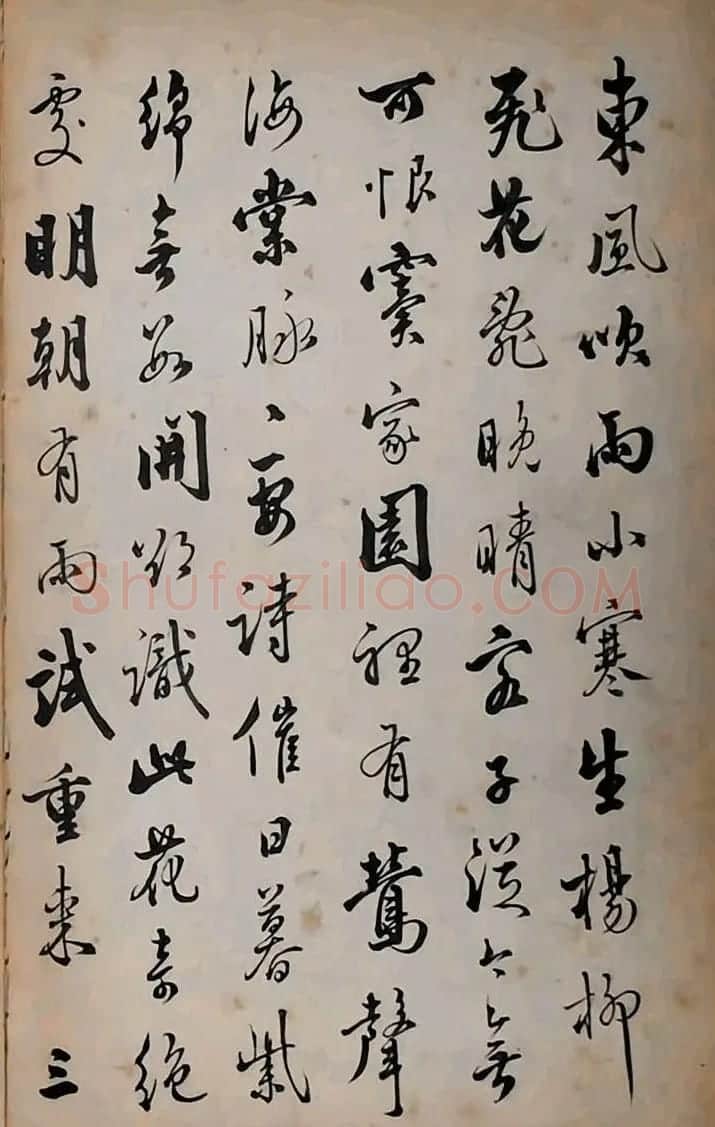 東風吹雨小寒生楊柳
飛花亂晚晴客子從今無
可恨竇家園裡有鶯聲
海棠脉、要詩催日暮紫
綿無數開欲識此花奇絕
處明朝有雨試重來 三
Shufaziliao.COM